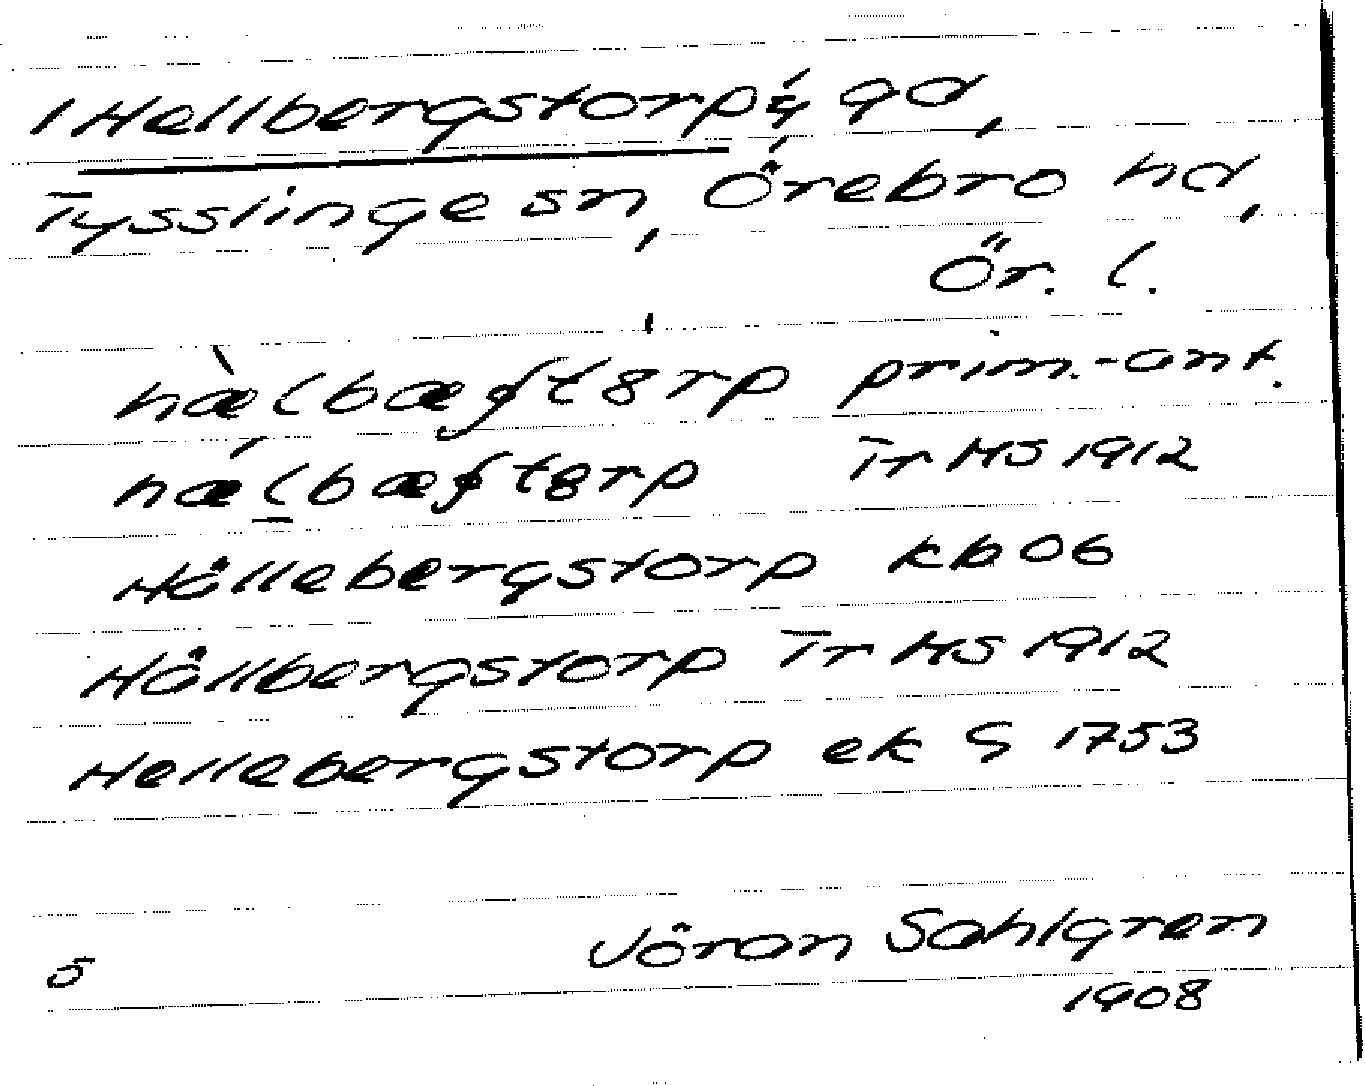 1 Hellbergstorp, gd,
Tysslinge sn, Örebro hd,
Ör. l.
hælbæʃtørp prim.-ant.
hælbæʃtørp Tr HS 1912
Hållebergstorp kb 06
Hållbergstorp Tr HS 1912
Hellebergstorp ek G 1753
Jöran Sahlgren
5
1908